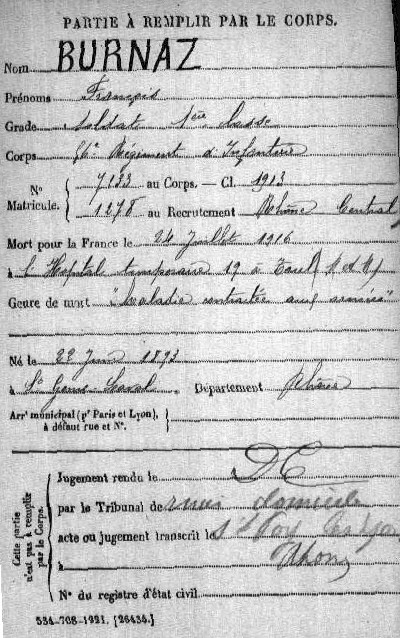 PARTIE À REMPLIR PAR LE CORPS.
Nom BURNAZ
Prénoms François
Grade Soldat 1ère classe
Corps Régiment d'Infanterie
N° Matricule. 7133 au Corps. — Cl. 1913
1278 au Recrutement Rhône Central
Mort pour la France le 24 Juillet 1916
à l'Hopital temporaire 19 à Toul (M & M)
Genre de mort "Maladie contractée aux armées"
Né le 22 Juin 1893
à St Genis-Laval Département Rhône
Arrt municipal (pr Paris et Lyon), à défaut rue et N°.
Cette partie n'est pas à remplir par le Corps.
Jugement rendu le DC
par le Tribunal de domicile
acte ou jugement transcrit le Ste Foy les Lyon
à Rhône
N° du registre d'état civil
534-708-1921. [26434.]